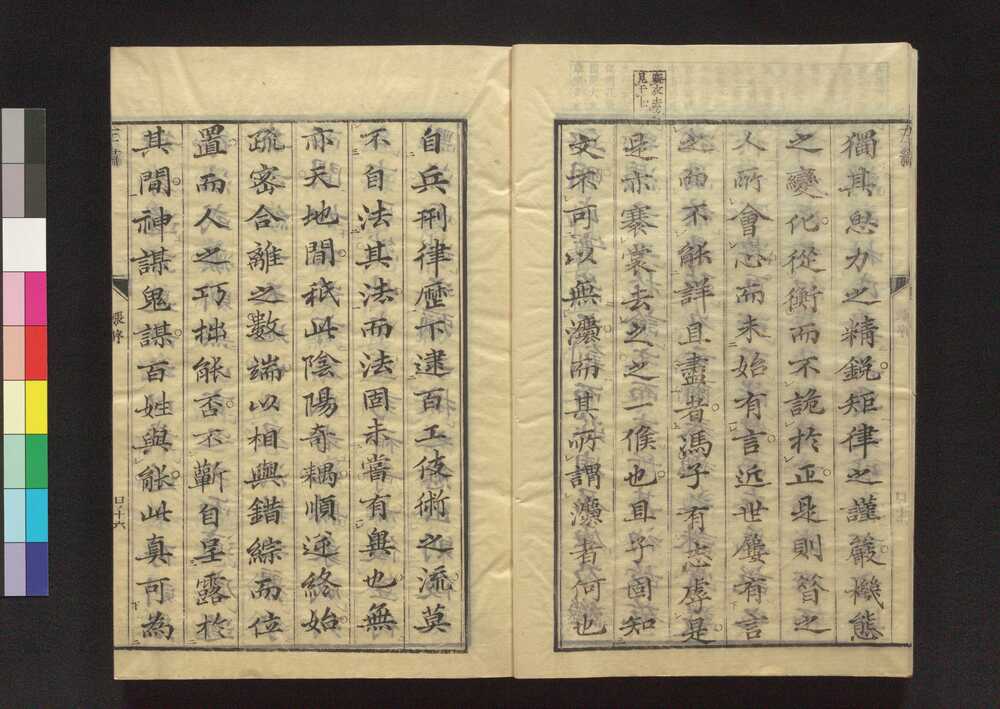 獨其思力之精銳矩律之謹嚴機態
之變化從衡而不詭於正是則昔之
人所會心而未始有言近世屢有言
之而不能詳且盡者馮子有志虖是
是亦褰裳去之之一候也且子固知
文不可以無灋而其所謂灋者何也
自兵刑律歷下逮百工伎術之流莫
不自法其法而法固未嘗有異也無
亦天地間秖此陰陽奇耦順逆終始
疏密合離之數端以相與錯綜而位
置而人之巧拙能否不蘄自呈露於
其間神謀鬼謀百姓與能此真可為
張序
口十六